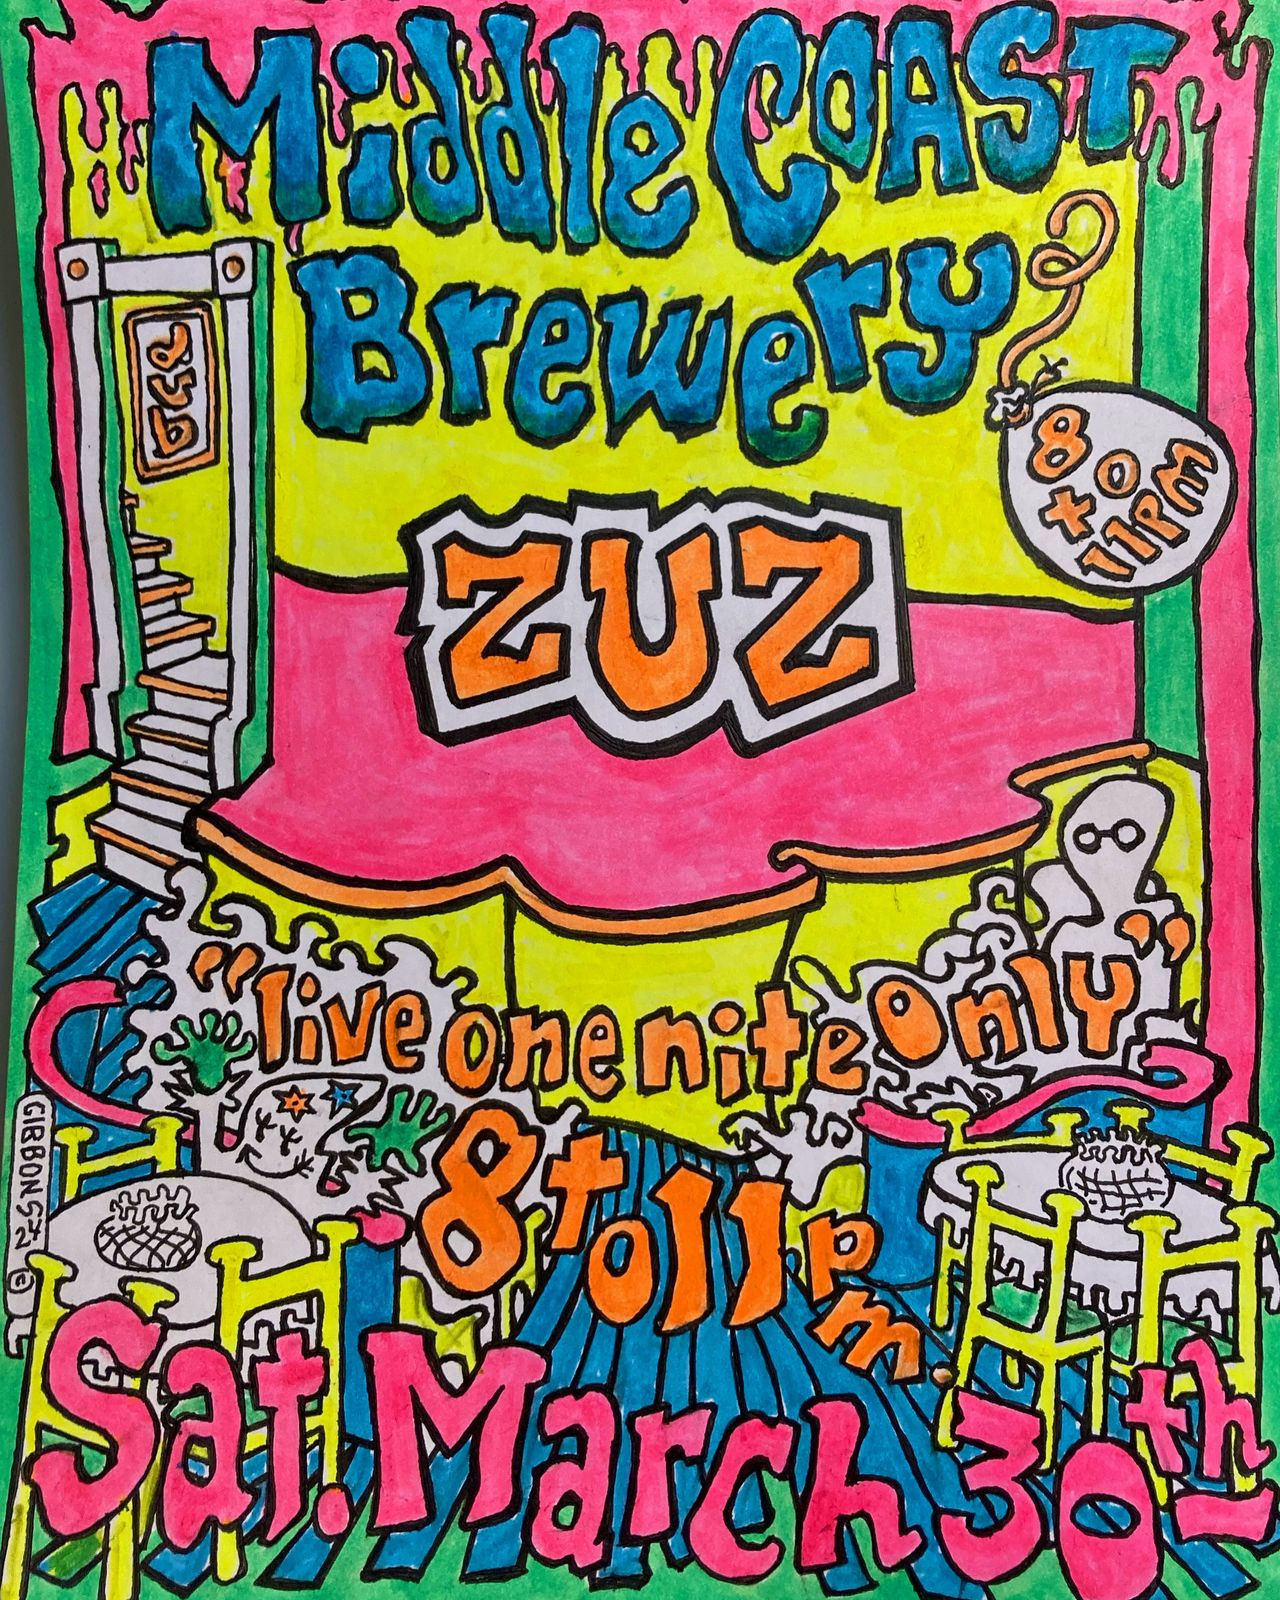 Middle COAST
Brewery
8 to
11PM
ZUZ
"live one nite only"
8 to 11 pm.
GIBBONSZ ©
Sat. March 30th